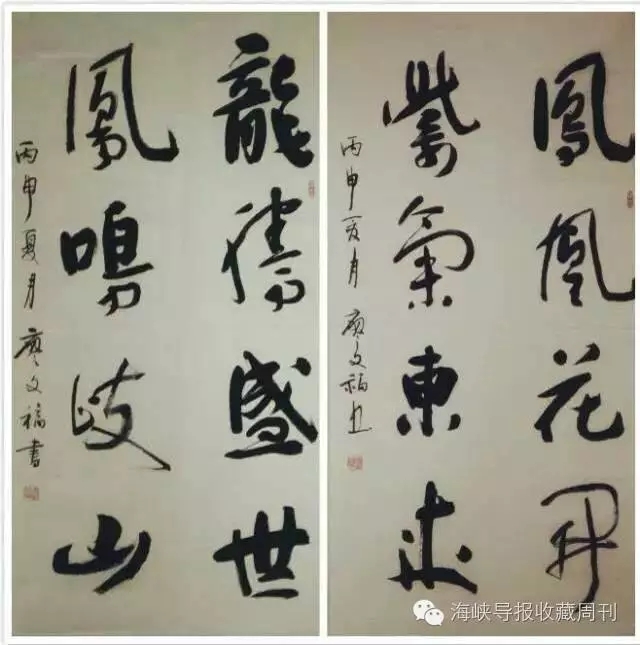 龍騰盛世
鳳鳴岐山
丙申夏月 廖文福書
鳳凰花開
紫氣東來
丙申夏月 廖文福書
海峡导报收藏周刊